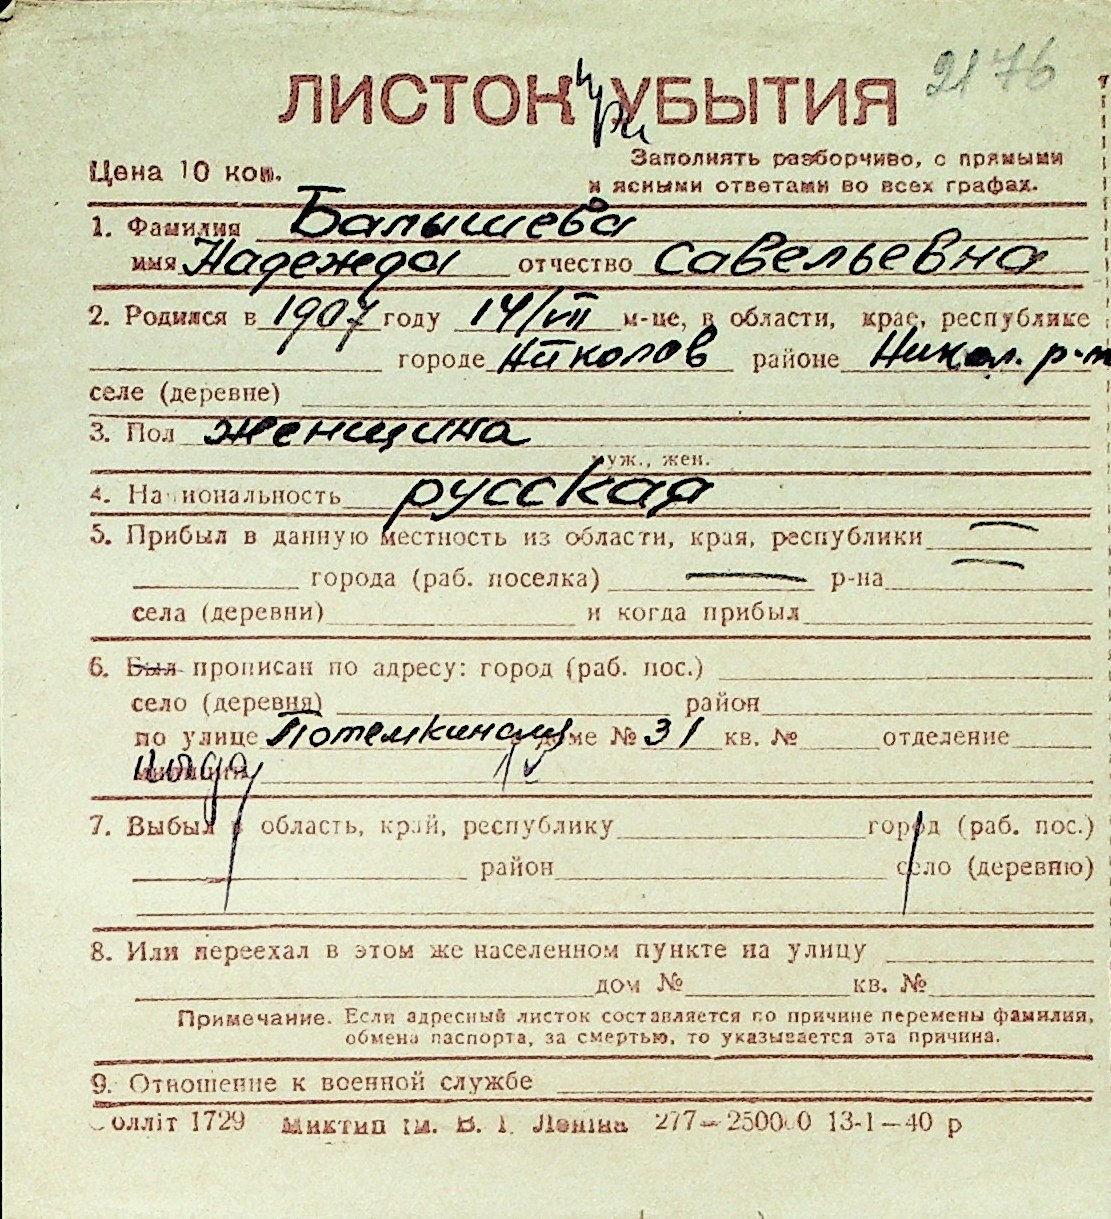 2176
ЛИСТОК УБЫТИЯ
Цена 10 коп.
Заполнять разборчиво, с прямыми
и ясными ответами во всех графах.
1. Фамилия Балышева
имя Надежда отчество Савельевна
2. Родился в 1907 году 14/VII м-це, в области, крае, республике
городе Николаев районе Никол. р-н
селе (деревне)
3. Пол женщина
муж., жен.
4. Национальность русская
5. Прибыл в данную местность из области, края, республики —
города (раб. поселка) — р-на —
села (деревни) и когда прибыл
6. Был прописан по адресу: город (раб. пос.)
село (деревня) район
по улице Потемкинская в доме № 31 кв. № отделение
милиции
7. Выбыл в область, край, республику город (раб. пос.)
район село (деревню)
8. Или переехал в этом же населенном пункте на улицу
дом № кв. №
Примечание. Если адресный листок составляется по причине перемены фамилия,
обмена паспорта, за смертью, то указывается эта причина.
9. Отношение к военной службе
олліт 1729 Миктип ім. В. І. Леніна 277—250000 13-1—40 р